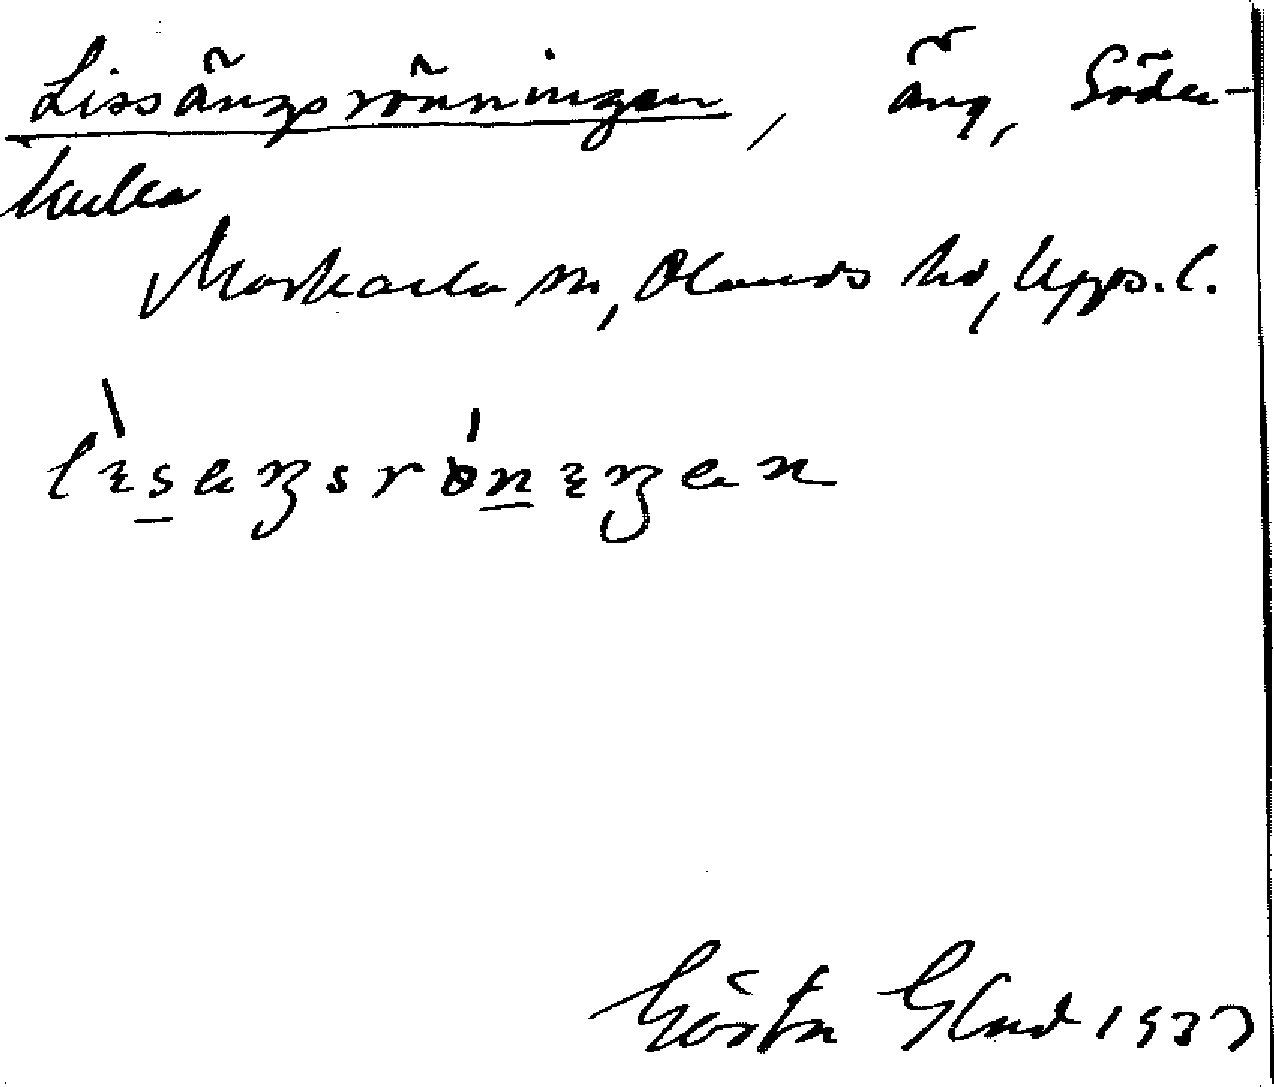 Lissängsrönningen, äng, Söder-
kulla
Morkarla sn, Olands hd, Upps. l.
lɩsaŋsrönɩŋan
Gösta Glad 1937